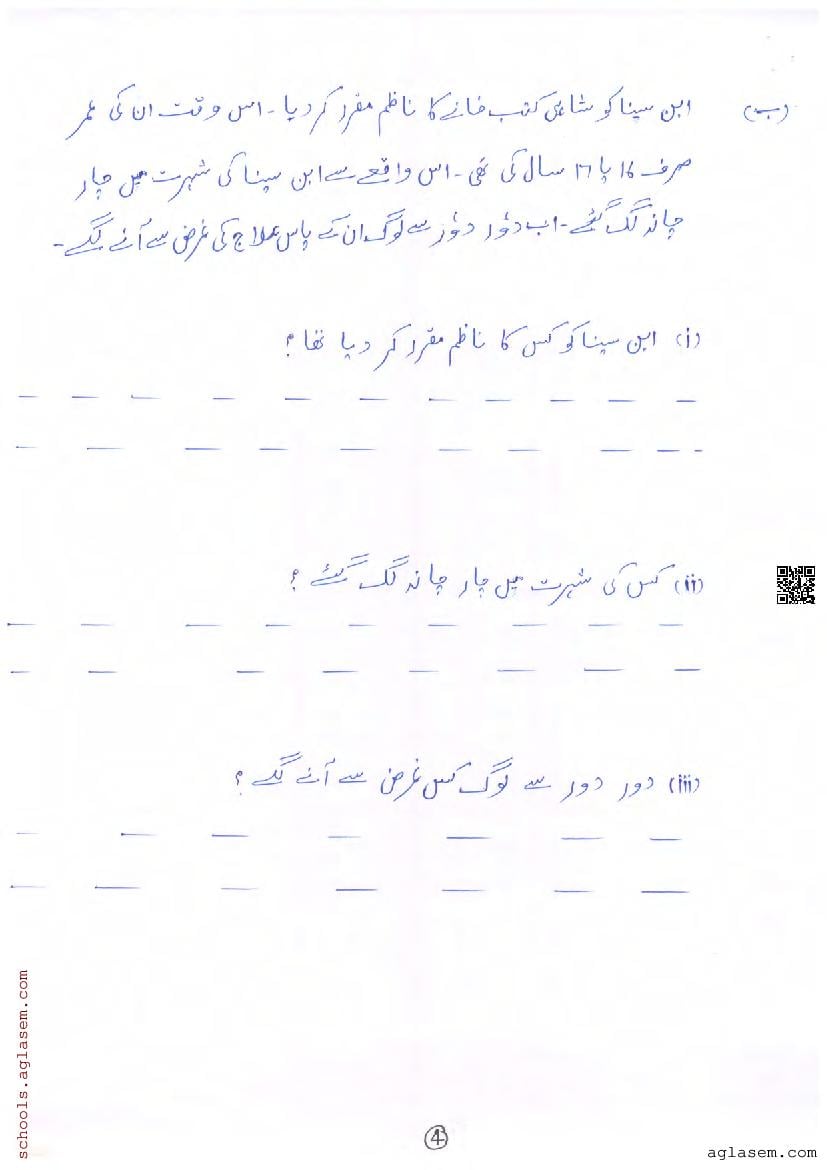 (ب) ابن سینا کو شاہی کتب خانے کا ناظم مقرر کر دیا۔ اس وقت ان کی عمر
صرف 16 یا 17 سال کی تھی۔ اس واقعے سے ابن سینا کی شہرت میں چار
چاند لگ گئے۔ اب دُور دُور سے لوگ ان کے پاس علاج کی غرض سے آنے لگے۔
(i) ابن سینا کو کس کا ناظم مقرر کر دیا تھا؟
(ii) کس کی شہرت میں چار چاند لگ گئے؟
(iii) دور دور سے لوگ کس غرض سے آنے لگے؟
schools.aglasem.com
4
aglasem.com